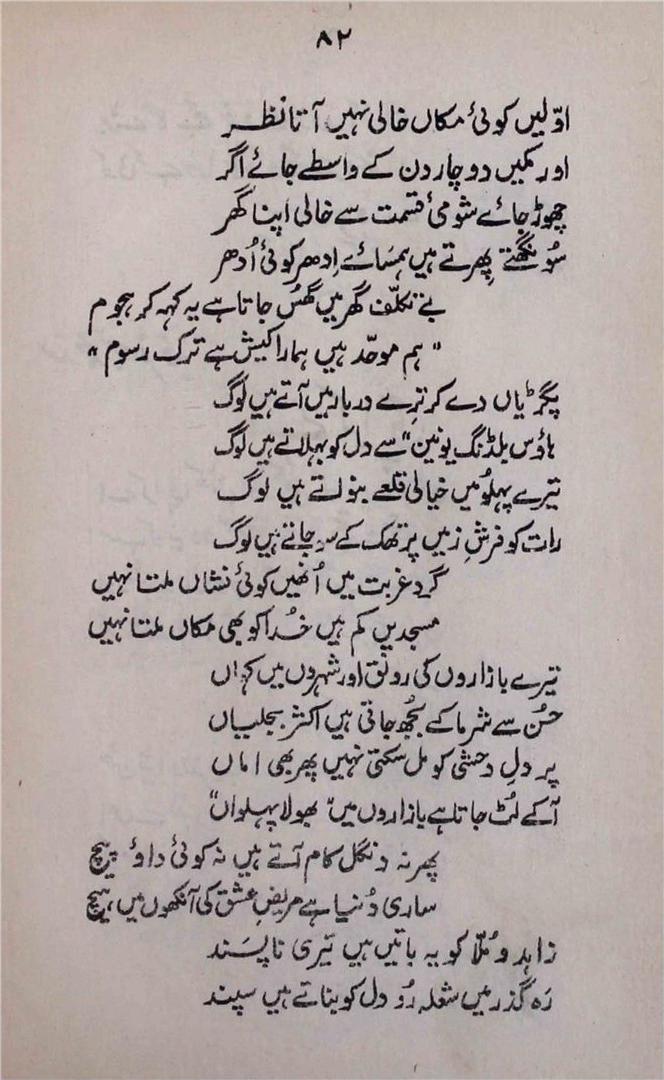 ۸۲
اوّلیں کوئی مکاں خالی نہیں آتا نظر
اور کمیں دو چار دن کے واسطے جائے اگر
چھوڑ جائے شومیٔ قسمت سے خالی اپنا گھر
سُونگھتے پھرتے ہیں ہمسائے اِدھر کوئی اُدھر
بے تکلّف گھر میں گھُس جاتا ہے یہ کہہ کر ہجوم
"ہم موحّد ہیں ہمارا کیش ہے ترک رسوم"
پگڑیاں دے کر ترے دربار میں آتے ہیں لوگ
ہاؤس بلڈنگ یونین" سے دل کو بہلاتے ہیں لوگ
تیرے پہلُو میں خیالی قلعے بنواتے ہیں لوگ
رات کو فرشِ زمیں پر تھک کے سو جاتے ہیں لوگ
گردِ غربت میں اُنھیں کوئی نشاں ملتا نہیں
مسجدیں کم ہیں خُدا کو بھی مکاں ملتا نہیں
تیرے بازاروں کی رونق اور شہروں میں کہاں
حُسن سے شرما کے بُجھ جاتی ہیں اکثر بجلیاں
پر دلِ وحشی کو مل سکتی نہیں پھر بھی اماں
آکے لُٹ جاتا ہے بازاروں میں "بھولا پہلواں"
پھر نہ دنگل کام آتے ہیں نہ کوئی داؤ پیچ
ساری دُنیا ہے مریضِ عشق کی آنکھوں میں ہیچ
زاہد و مُلّا کو یہ باتیں ہیں تیری ناپسند
رَہ گذر میں شعلہ رُو دل کو بناتے ہیں سپند